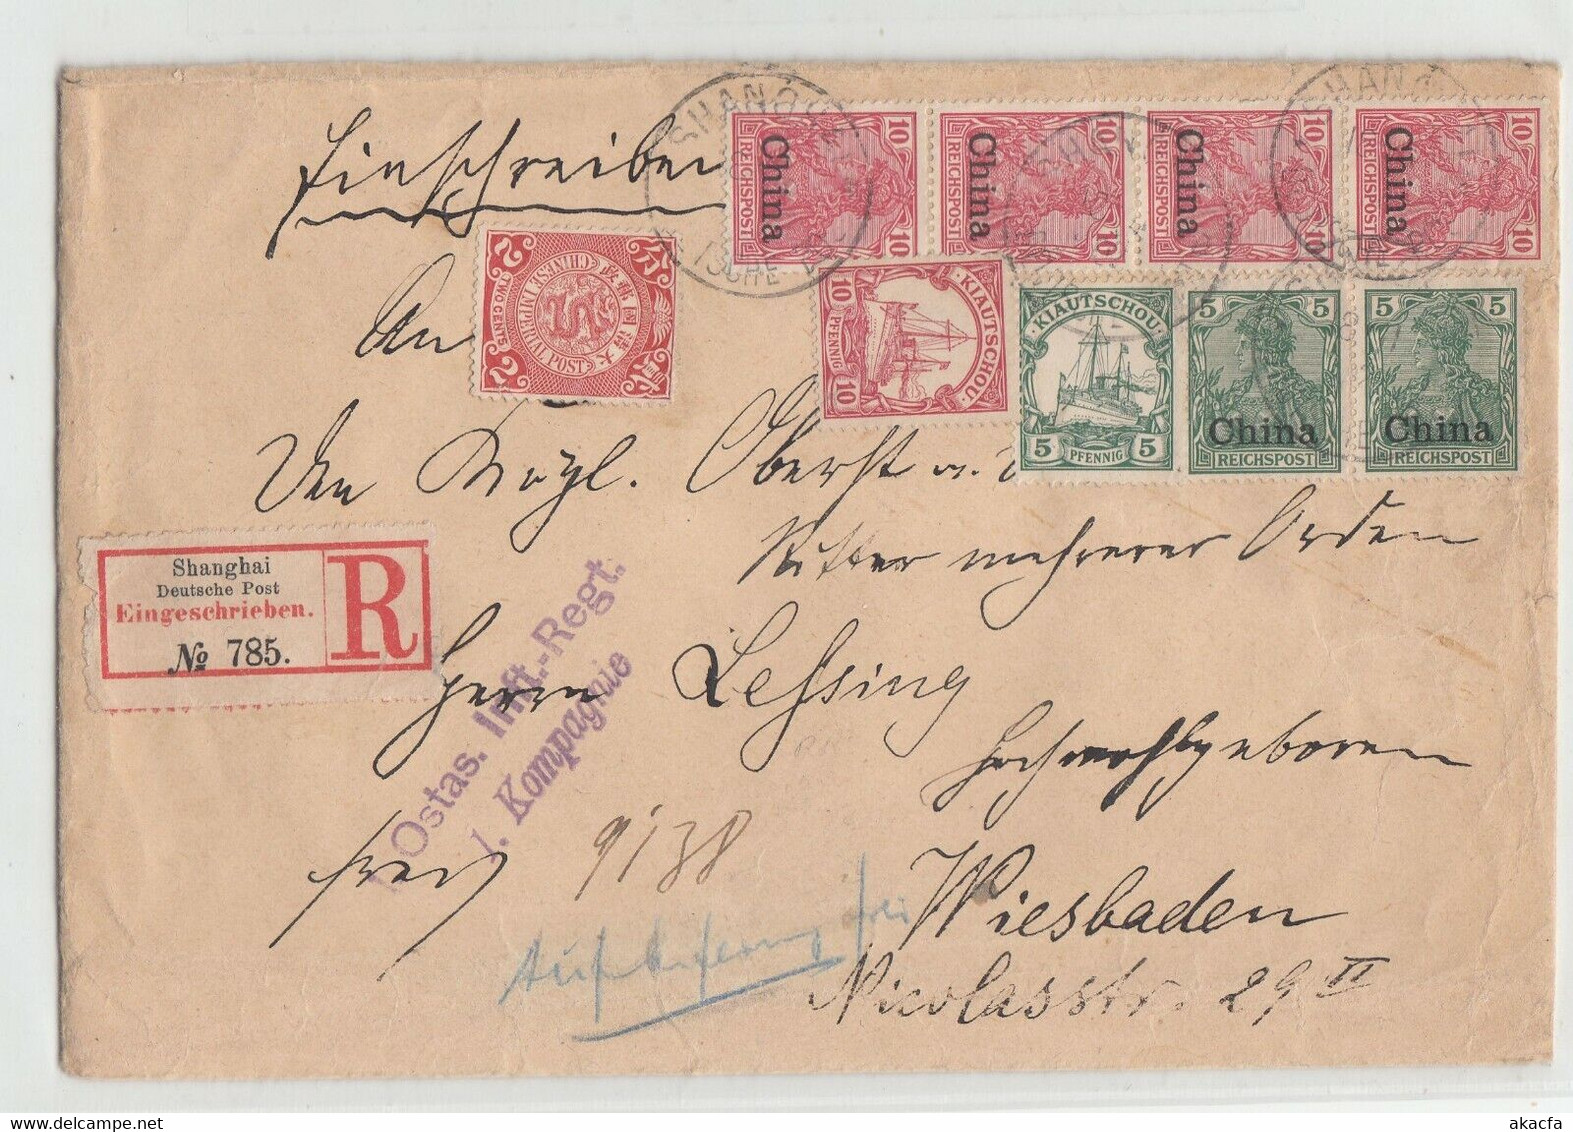 Einschreiben
SHANGHAI
DEUTSCHE
China China China China
REICHSPOST REICHSPOST REICHSPOST REICHSPOST
10 10 10 10 10 10 10 10
An
CHINESE IMPERIAL POST
大清國郵政
TWO CENTS
2 2
KIAUTSCHOU
10 PFENNIG 10
KIAUTSCHOU
5 PFENNIG 5
5 5 China REICHSPOST
5 5 China REICHSPOST
Den Kögl. Oberst a. D
Ritter mehrerer Orden
Shanghai
Deutsche Post
Eingeschrieben.
№ 785.
R
Herrn Lessing
Hochwohlgeboren
Ostas. Inft.-Regt.
1. Kompagnie
frei 9/38
Wiesbaden
Nicolasstr. 29 II
akacfa